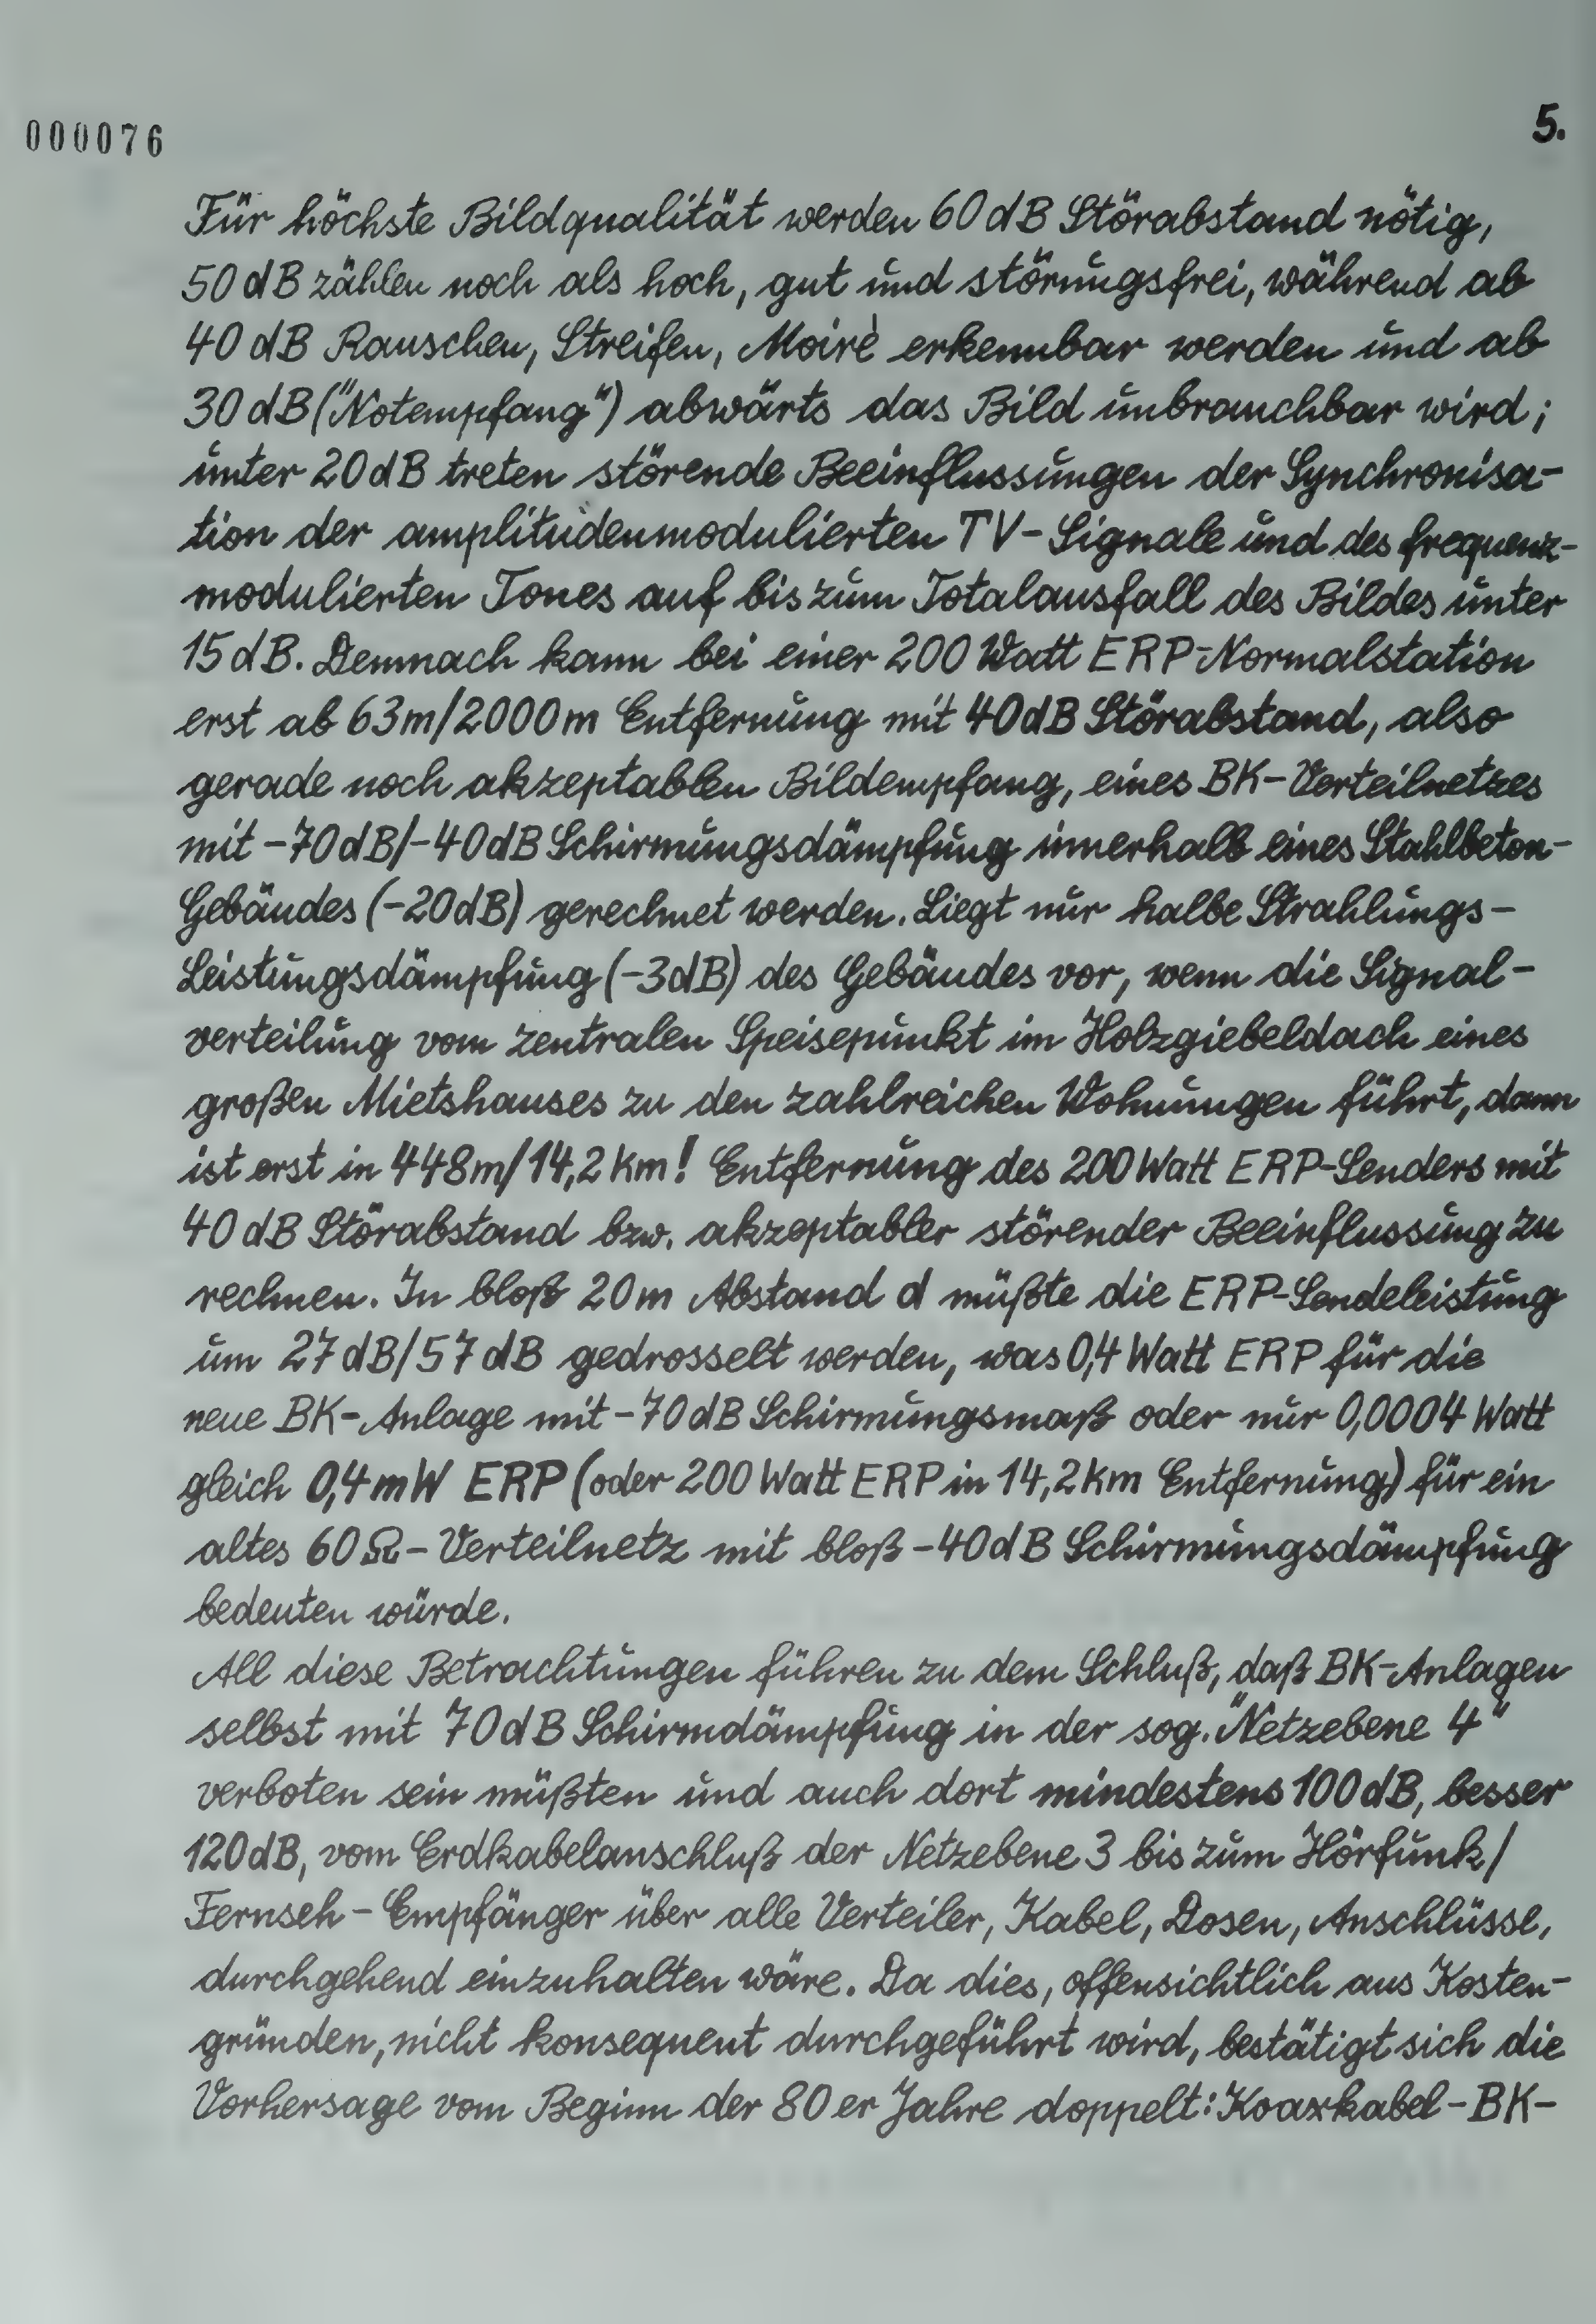 000076
5.
Für höchste Bildqualität werden 60 dB Störabstand nötig,
50 dB zählen noch als hoch, gut und störungsfrei, während ab
40 dB Rauschen, Streifen, Moirè erkennbar werden und ab
30 dB ("Notempfang") abwärts das Bild unbrauchbar wird;
unter 20 dB treten störende Beeinflussungen der Synchronisa-
tion der amplitudenmodulierten TV-Signale und des frequenz-
modulierten Tones auf bis zum Totalausfall des Bildes unter
15 dB. Demnach kann bei einer 200 Watt ERP-Normalstation
erst ab 63m/2000m Entfernung mit 40 dB Störabstand, also
gerade noch akzeptablen Bildempfang, eines BK-Verteilnetzes
mit -70 dB/-40 dB Schirmungsdämpfung innerhalb eines Stahlbeton-
Gebäudes (-20 dB) gerechnet werden. Liegt nur halbe Strahlungs-
Leistungsdämpfung (-3 dB) des Gebäudes vor, wenn die Signal-
verteilung vom zentralen Speisepunkt im Holzgiebeldach eines
großen Mietshauses zu den zahlreichen Wohnungen führt, dann
ist erst in 448m/14,2 km! Entfernung des 200 Watt ERP-Senders mit
40 dB Störabstand bzw. akzeptabler störender Beeinflussung zu
rechnen. In bloß 20 m Abstand d müßte die ERP-Sendeleistung
um 27 dB/57 dB gedrosselt werden, was 0,4 Watt ERP für die
neue BK-Anlage mit -70 dB Schirmungsmaß oder nur 0,0004 Watt
gleich 0,4 mW ERP (oder 200 Watt ERP in 14,2 km Entfernung) für ein
altes 60 Ω-Verteilnetz mit bloß -40 dB Schirmungsdämpfung
bedeuten würde.
All diese Betrachtungen führen zu dem Schluß, daß BK-Anlagen
selbst mit 70 dB Schirmdämpfung in der sog. "Netzebene 4"
verboten sein müßten und auch dort mindestens 100 dB, besser
120 dB, vom Erdkabelanschluß der Netzebene 3 bis zum Hörfunk/
Fernseh-Empfänger über alle Verteiler, Kabel, Dosen, Anschlüsse,
durchgehend einzuhalten wäre. Da dies, offensichtlich aus Kosten-
gründen, nicht konsequent durchgeführt wird, bestätigt sich die
Vorhersage vom Beginn der 80er Jahre doppelt: Koaxkabel-BK-